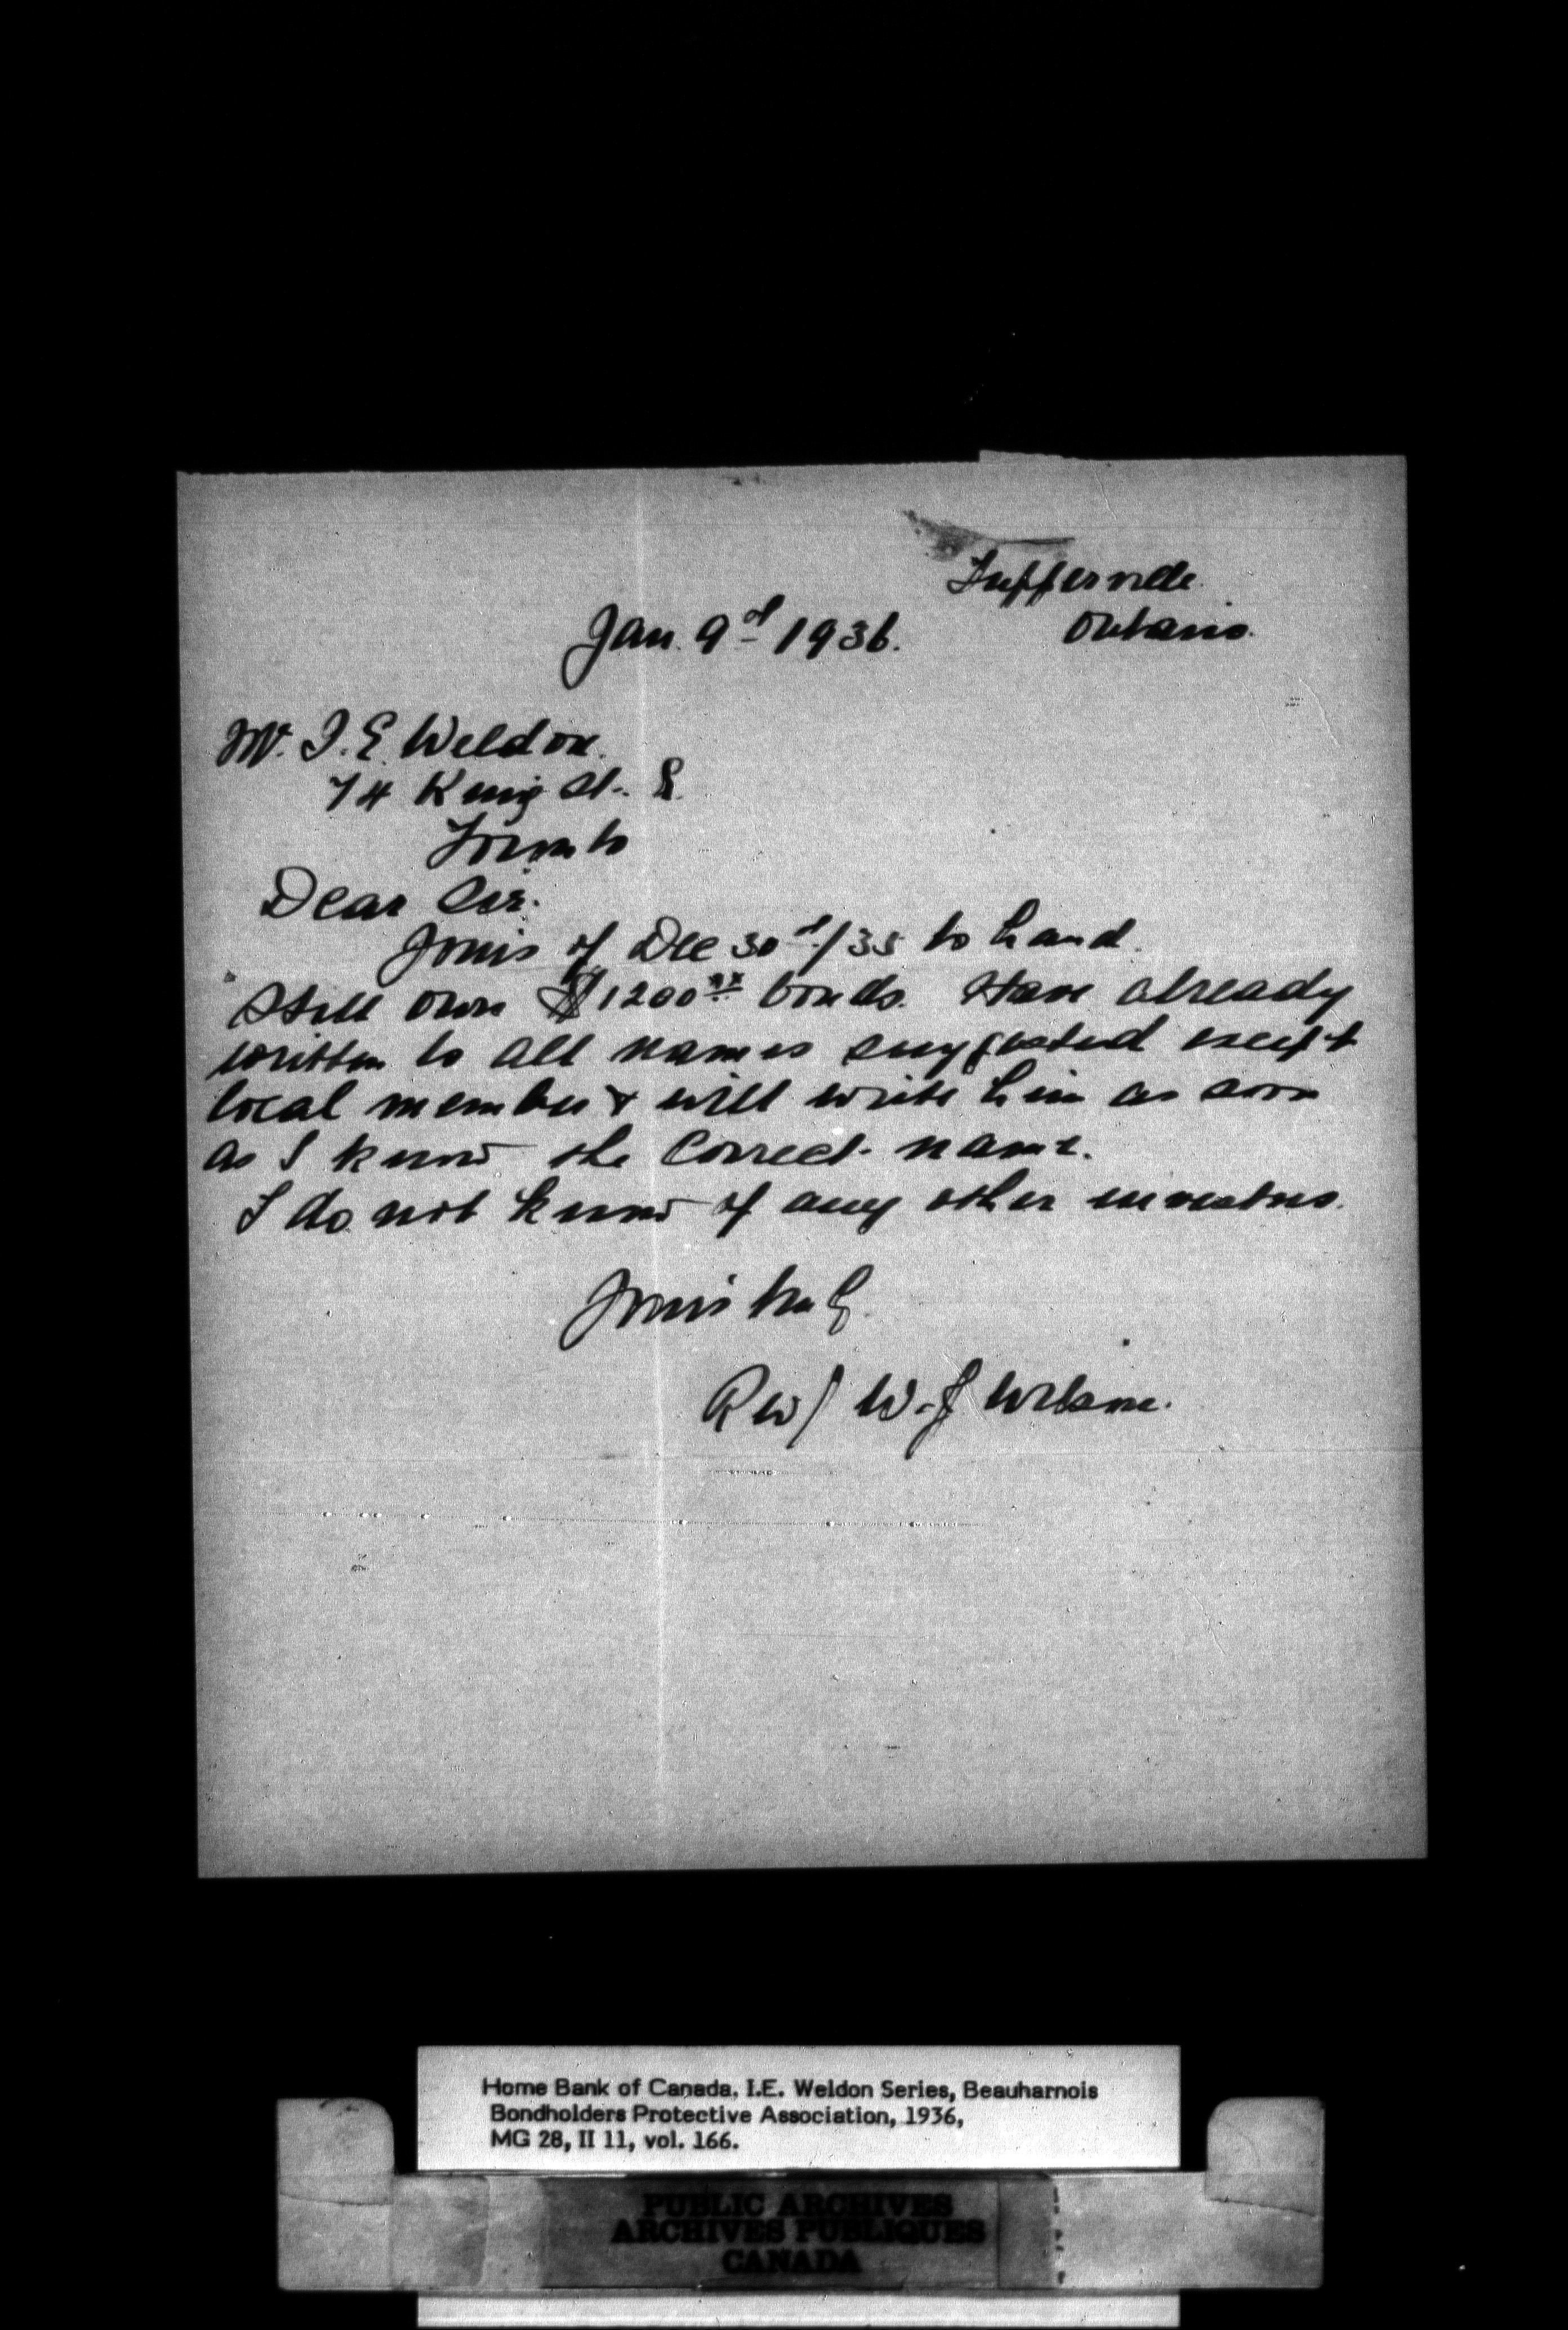 Tupperville
Ontario.
Jan. 9d 1936.
Mr. I. E. Weldon.
74 King St. E.
Toronto
Dear Sir.
Yours of Dec 30d/35 to hand.
Still own $1200xx bonds. Have already
written to all names suggested except
local member & will write him as soon
as I know the correct name.
I do not know of any other investors.
Yours truly.
Rev/ W. J. Wilson.
Home Bank of Canada, I.E. Weldon Series, Beauharnois
Bondholders Protective Association, 1936,
MG 28, II 11, vol. 166.
PUBLIC ARCHIVES
ARCHIVES PUBLIQUES
CANADA